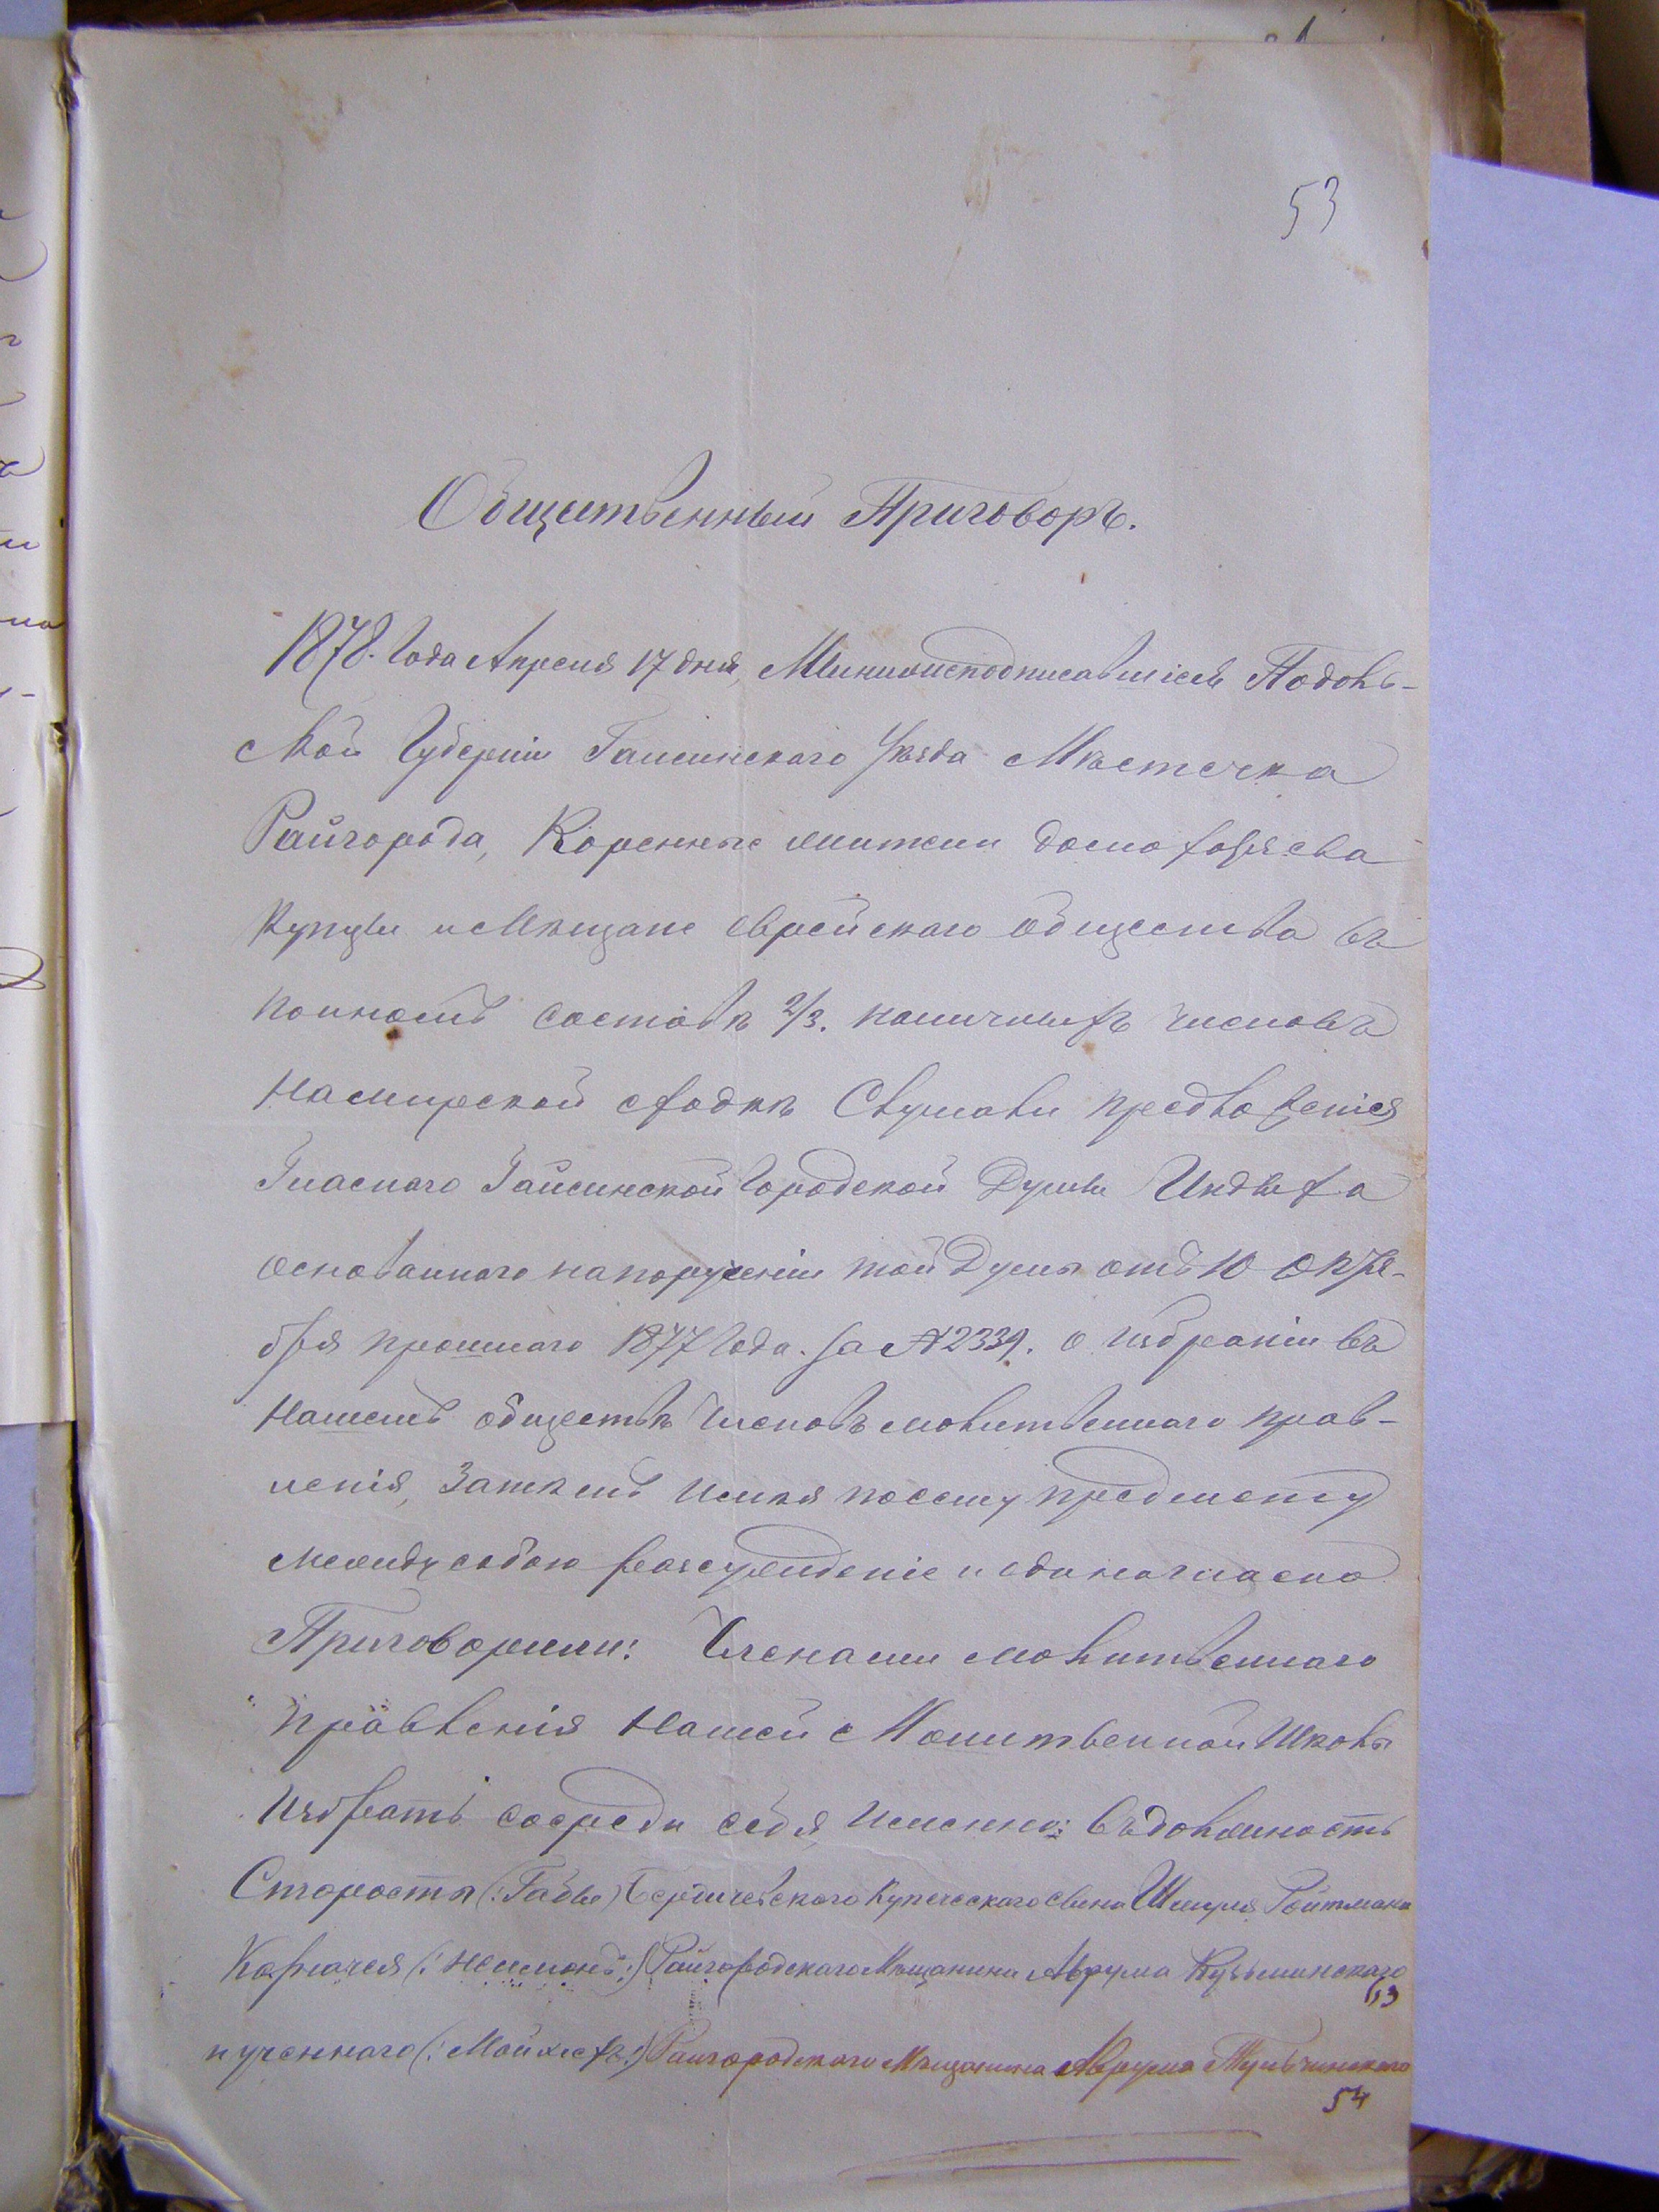 53
Общественный Приговоръ.
1878. Года Апреля 17 дня, Мынижеподписавшіеся Подоль-
ской Губерніи Гаисинского Уѣзда Мѣстечка
Райгорода, Коренные жители домохозяева
Купцы и Мѣщане Еврейскаго общества въ
полномъ составѣ 2/3. наличныхъ членовъ
намирской сходкѣ Слушали предложенія
Гласнаго Гайсинской Городской Думы Индыха
основаннаго напорученіи той Думы отъ 10 Октя-
бря прошлаго 1877 Года. за № 2339. о избраніи въ
нашемъ обществѣ членовъ молитвеннаго прав-
ленія, Затѣмъ имѣя посему предмету
между собою разсужденіе и единогласно
Приговорили: Членами молитвеннаго
правленія нашей Молитвенной Школы
избрать сосреди себя, именно: въдолжность
Старосты (:Габы) Бердичевского Купеческаго сына Шмуля Ройтмана
Казначея (:Неемонъ:) Райгородскаго Мѣщанина Аврума Кузьминскаго
и ученнаго (:Мойхесъ:) Райгородскаго Мѣщанина Аврума Тульчинскаго
53
54